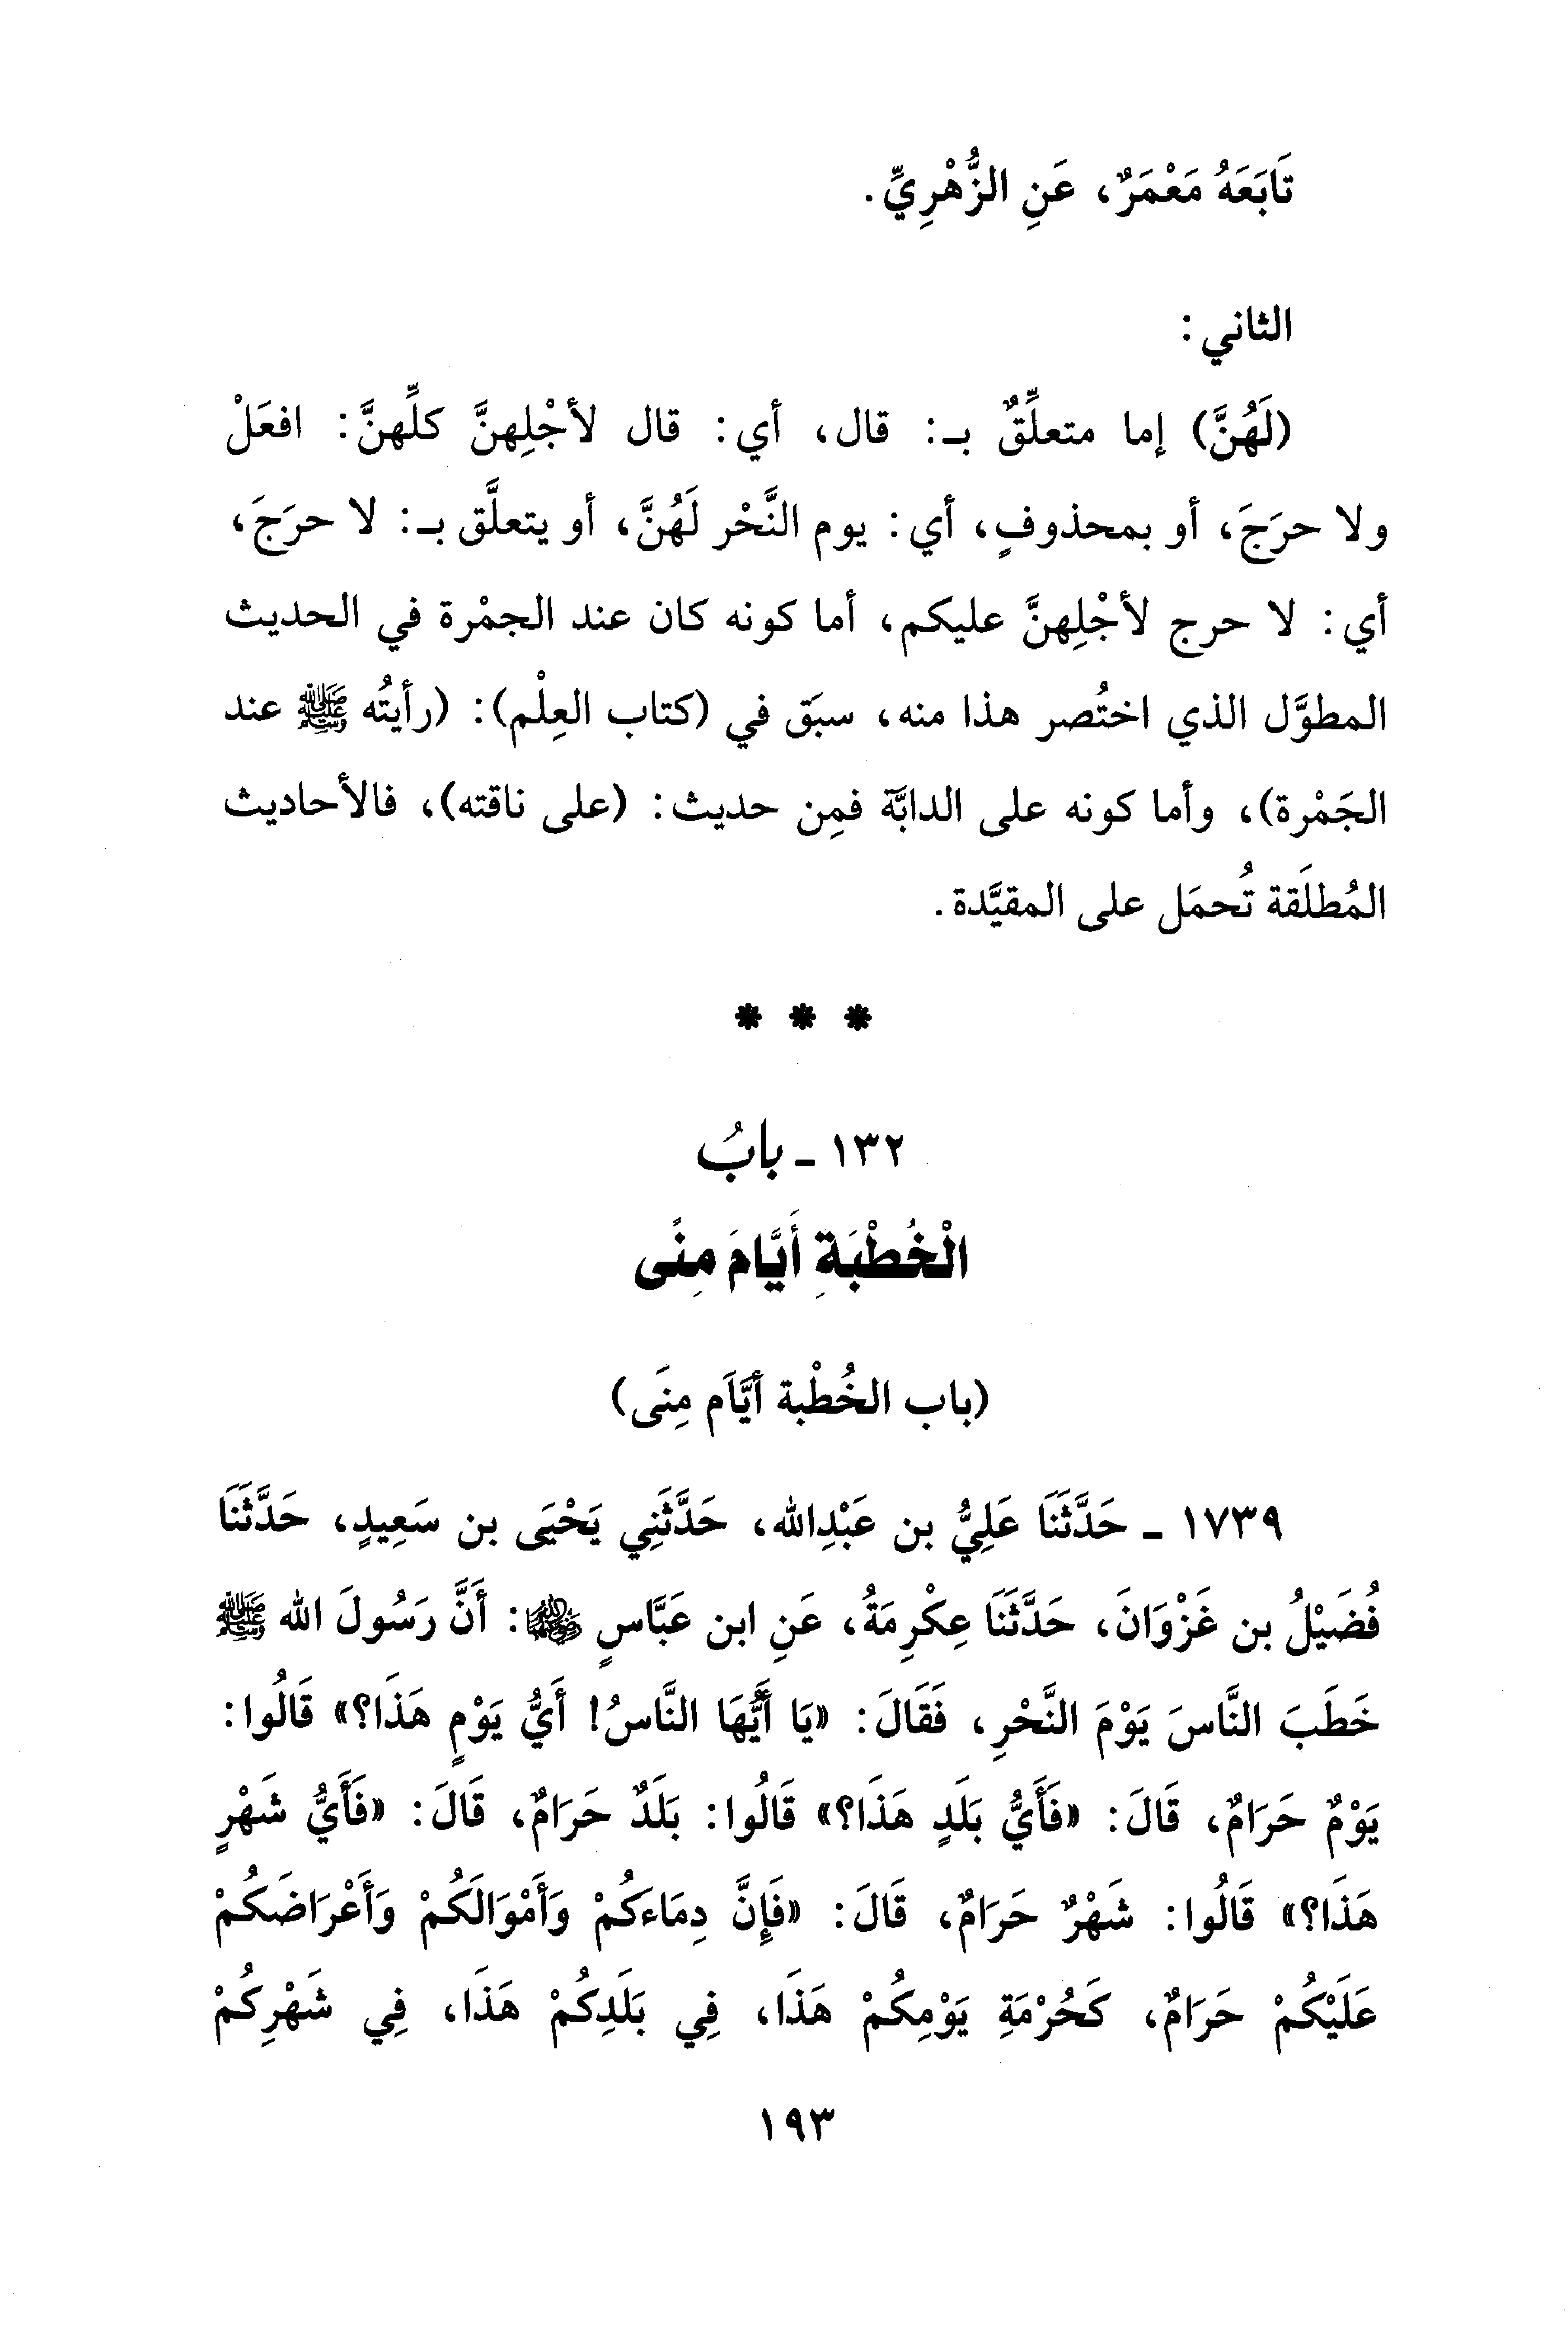 تَابَعَهُ مَعْمَرٌ، عَنِ الزُّهْرِيِّ.
الثاني:
(لَهُنَّ) إما متعلِّقٌ بـ: قال، أي: قال لأجْلِهنَّ كلِّهنَّ: افعَلْ
ولا حرَجَ، أو بمحذوفٍ، أي: يوم النَّحْر لَهُنَّ، أو يتعلَّق بـ: لا حرَجَ،
أي: لا حرج لأجْلِهنَّ عليكم، أما كونه كان عند الجمْرة في الحديث
المطوَّل الذي اختُصر هذا منه، سبَق في (كتاب العِلْم): (رأيتُه ﷺ عند
الجَمْرة)، وأما كونه على الدابَّة فمِن حديث: (على ناقته)، فالأحاديث
المُطلَقة تُحمَل على المقيَّدة.
* * *
١٣٢ ـ بابُ
الْخُطْبَةِ أَيَّامَ مِنًى
(باب الخُطْبة أيَّام مِنَى)
١٧٣٩ ـ حَدَّثَنَا عَلِيُّ بن عَبْدِالله، حَدَّثَنِي يَحْيَى بن سَعِيدٍ، حَدَّثَنَا
فُضَيْلُ بن غَزْوَانَ، حَدَّثَنَا عِكْرِمَةُ، عَنِ ابن عَبَّاسٍ ﵄: أَنَّ رَسُولَ الله ﷺ
خَطَبَ النَّاسَ يَوْمَ النَّحْرِ، فَقَالَ: «يَا أَيُّهَا النَّاسُ! أَيُّ يَوْمٍ هَذَا؟» قَالُوا:
يَوْمٌ حَرَامٌ، قَالَ: «فَأَيُّ بَلَدٍ هَذَا؟» قَالُوا: بَلَدٌ حَرَامٌ، قَالَ: «فَأَيُّ شَهْرٍ
هَذَا؟» قَالُوا: شَهْرٌ حَرَامٌ، قَالَ: «فَإِنَّ دِمَاءَكُمْ وَأَمْوَالَكُمْ وَأَعْرَاضَكُمْ
عَلَيْكُمْ حَرَامٌ، كَحُرْمَةِ يَوْمِكُمْ هَذَا، فِي بَلَدِكُمْ هَذَا، فِي شَهْرِكُمْ
١٩٣